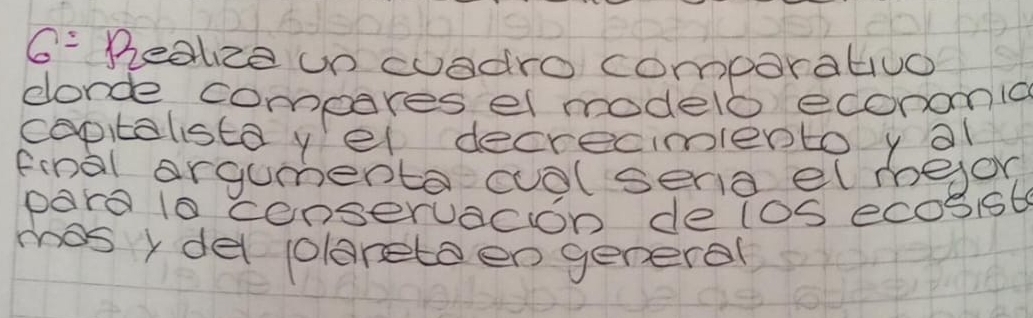 6= Realiza un cuadro comparativo
donde compares el modelo economico
capitalista y el decrecimiento y al
final argumenta cual seria el mejor
para la conservación de los ecosiste
mas y del planeta en general